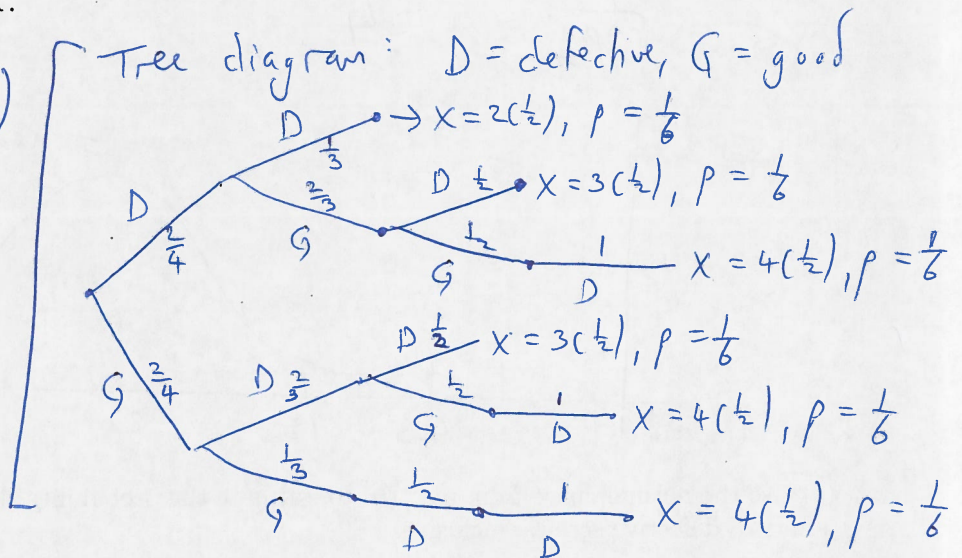 Tree diagram: D = defective, G = good
D 1/3 → X = 2(1/2), p = 1/6
D 2/4
2/3 G
D 1/2 X = 3(1/2), p = 1/6
1/2 G
1 D X = 4(1/2), p = 1/6
G 2/4
D 2/3
D 1/2 X = 3(1/2), p = 1/6
1/2 G
1 D X = 4(1/2), p = 1/6
1/3 G
1/2 D
1 D X = 4(1/2), p = 1/6